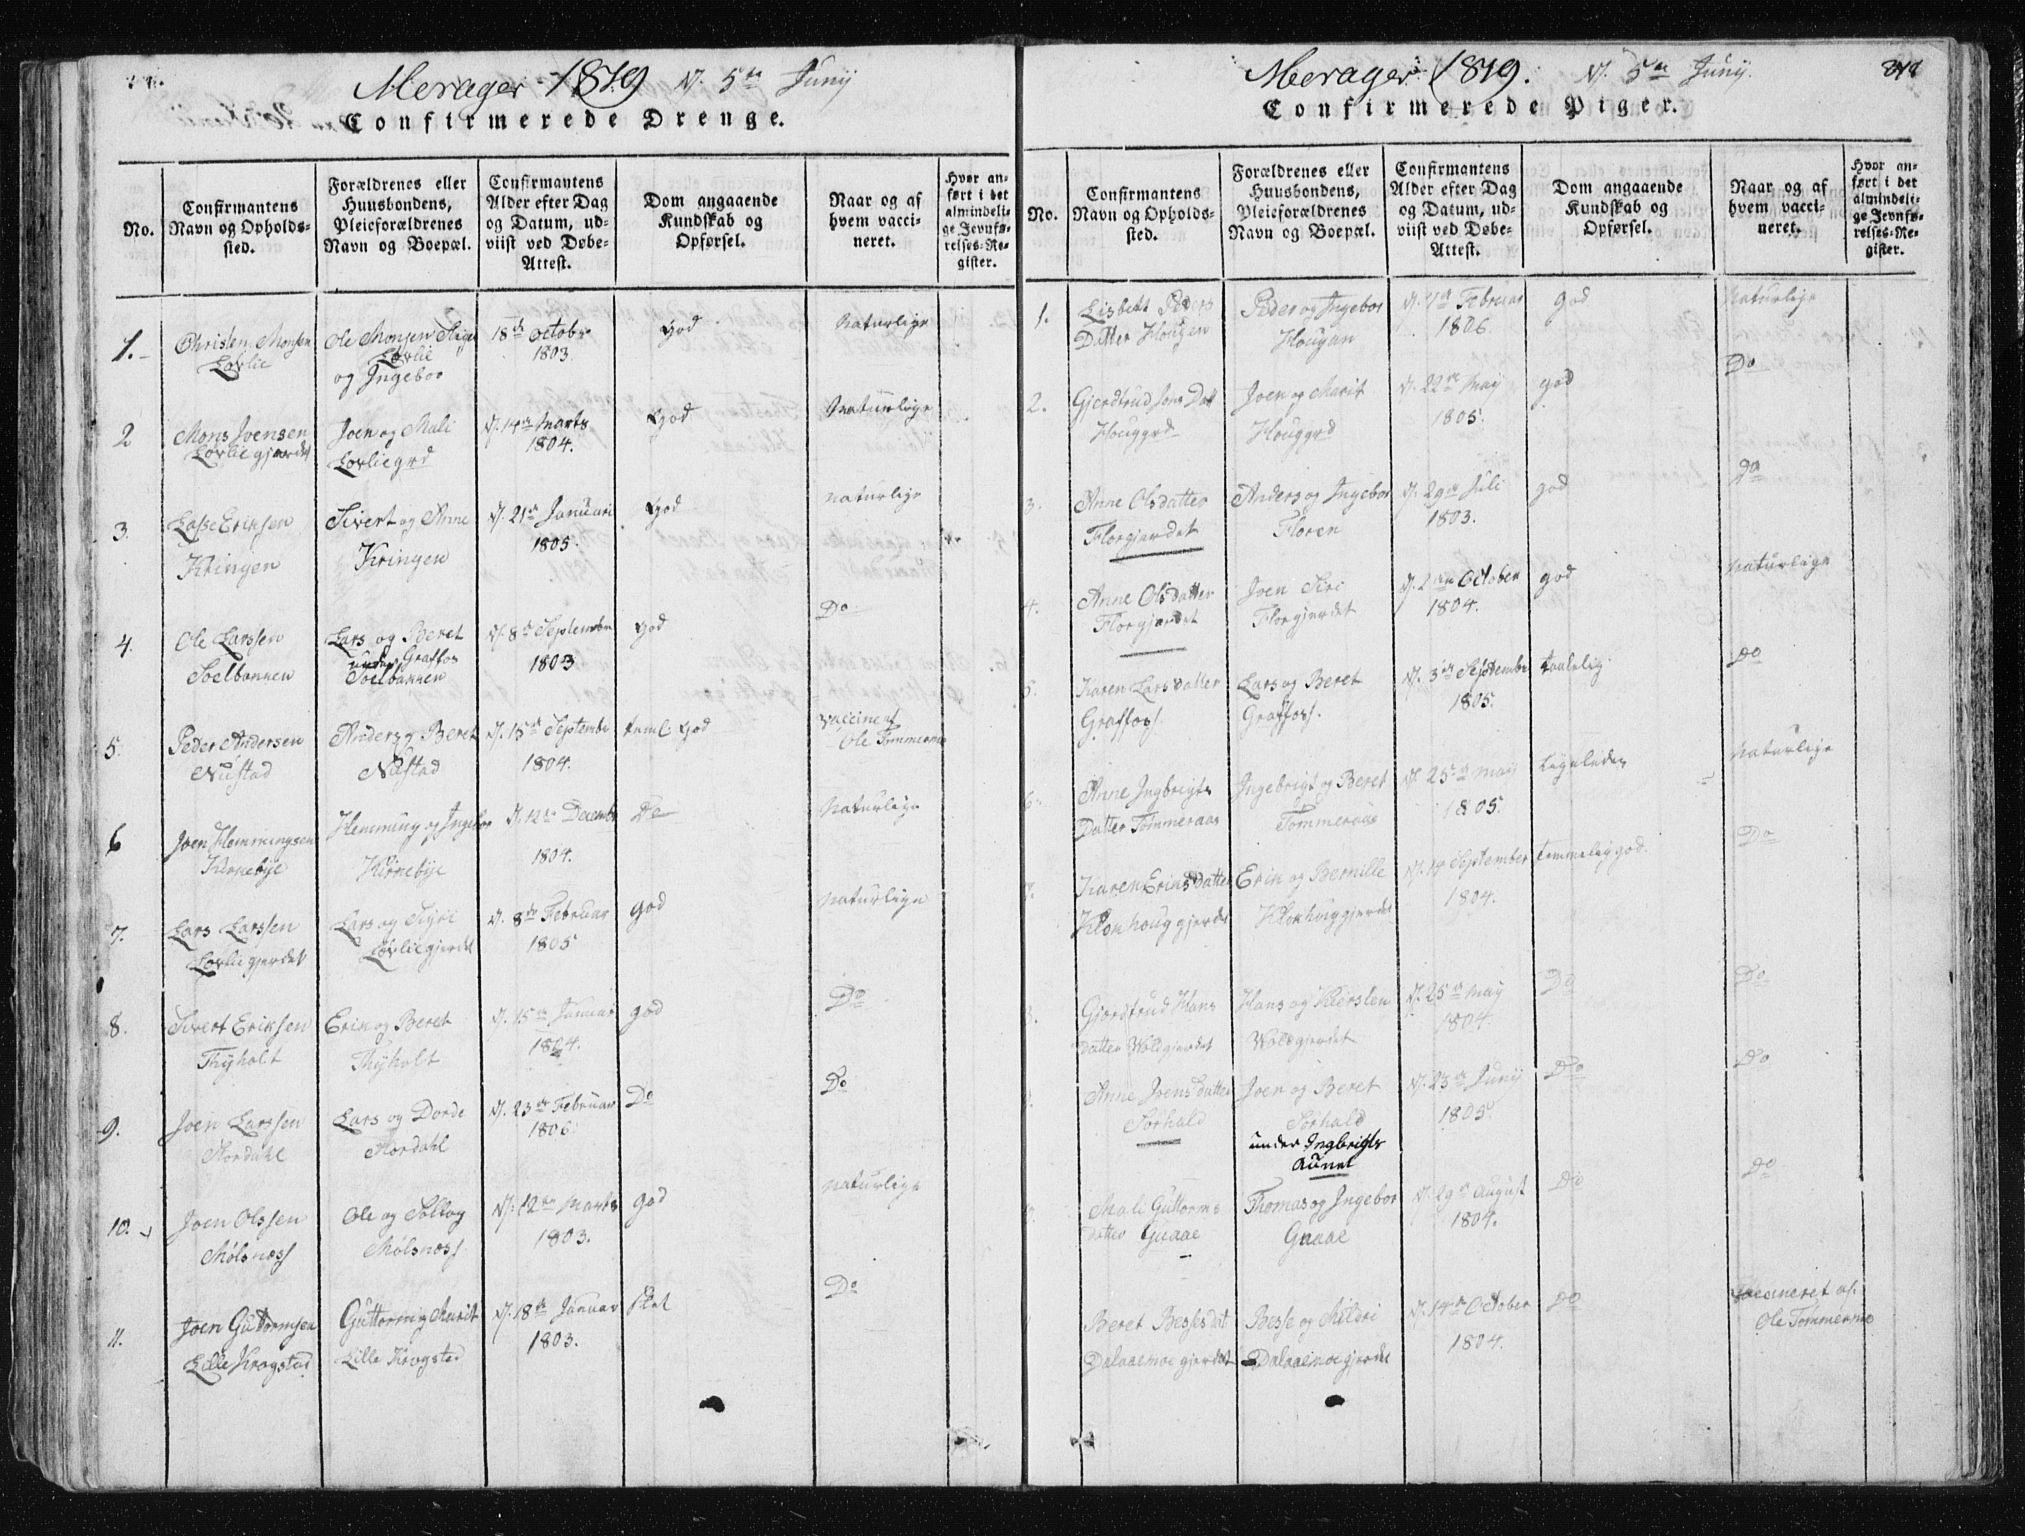 Merager 1819 d. 5te Junij
Confirmerede Drenge.
No.
Confirmantens
Navn og Opholds-
sted.
Forældrenes eller
Huusbondens,
Pleieforældrenes
Navn og Boepæl.
Confirmantens
Alder efter Dag
og Datum, ud-
viist ved Døbe-
Attest.
Dom angaaende
Kundskab og
Opførsel.
Naar og af
hvem vacci-
neret.
Hvor an-
ført i det
almindeli-
ge Jevnfø-
relses-Re-
gister.
1.
Christen Monsen
Løvlie
Ole Monsen
Løvlie
og Ingebor
18de octobr
1803.
God
Naturlige
2
Mons Joensen
Løvliegjerdet
Joen og Mali
Løvliegrd
d. 14de Marts
1804.
God
Naturlige
3.
Lasse Eriksen
Kringen
Sivert og Anne
Kringen
d. 21de Januari
1805.
God
naturlige
4.
Ole Larssen
Soelbakken
Lars og Beret
under Graffos
Soelbakken
d. 8de Septembr
1803
God
Do
5.
Peder Andersen
Nustad
Anders og Beret
Nustad
d. 15de Septembr
1804.
teml. God
vaccineret
Ole Tømmeraas
6
Joen Hemmingsen
Kirkebye
Hemming og Ingebor
Kirkebye
d. 12te Decembr
1804.
Do
Naturlige
7.
Lars Larssen
Løvliegjerdet
Lars og Siri
Løvliegjerdet
d. 8de Februar
1805
God
Naturlige
8.
Sivert Eriksen
Thyholt
Erik og Beret
Thyholt
d. 15de Januar
1804.
god
Do
9.
Joen Larssen
Stordahl
Lars og Dorde
Stordahl
d. 23de Februar
1806.
Do
Do
10.
Joen Olssen
Mølsnæss
Ole og Sollog
Mølsnæss
d. 12te Marts
1803.
God
naturlige
11.
Joen Guttormsen
Lille Krogstad
Guttorm og Marit
Lille Krogstad
d. 18de Januar
1803.
slet
Do
Merager 1819. d. 5te Junij.
Confirmerede Piger.
No.
Confirmantens
Navn og Opholds-
sted.
Forældrenes eller
Huusbondens,
Pleieforældrenes
Navn og Boepæl.
Confirmantens
Alder efter Dag
og Datum, ud-
viist ved Døbe-
Attest.
Dom angaaende
Kundskab og
Opførsel.
Naar og af
hvem vacci-
neret.
Hvor an-
ført i det
almindeli-
ge Jevnfø-
relses-Re-
gister.
1.
Lisbett Peders
Datter Hougen
Peder og Ingebor
Hougan
d. 7de Februar
1806.
God
Naturlige
2.
Gjerdtrud Jons Datt
Houggrd
Joen og Marit
Houggrd
d. 22de May
1805.
god
Do
3.
Anne Olsdatter
Florgjerdet
Anders og Ingebor
Floren
d. 29de Juli
1803.
god
Do
4.
Anne Olsdatter
Florgjerdet
Joen Siri
Florgjerdet
d. 2den October
1804.
god
Naturlige
5.
Karen Larsdatter
Graffoss
Lars og Beret
Graffoss.
d. 3de Septembr
1805.
taalelig
Do
6.
Anne Ingbrigts
Datter Tømmeraas
Ingebrigt og Beret
Tømmeraas
d. 25de May
1805.
Ligeledes
Naturlige
7.
Karen Eriksdatter
Klokhouggjerdet
Erik og Bernille
Klokhouggjerdet
d. 14 September
1804.
temmelig god.
Do
8.
Gjerdtrud Hans
Datter Woldgjerdet
Hans og Kiersten
Woldgjerdet
d. 25de May
1804.
Do
Do
Anne Joensdatter
Sørhald
Joen og Beret
Sørhald
under Ingbrigts
Aunet
d. 23de Juny
1805.
Do
Do
Mali Guttorms
datter Guaae
Thomas og Ingebor
Guaae
d. 29de August
1804.
Do
Do
Beret Bessesdat
Dalaaemoegjerdet
Besse og Mildri
Dalaaemoegjerdet
d. 14de October
1804.
Do
vaccineret af
Ole Tømmeraas